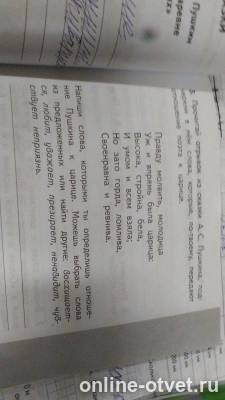 Пушкин
3. Прочитай отрывок из сказки А. С. Пушкина, под-
в нём слова, которые, по-твоему, передают
поэта к царице.
Правду молвить, молодица
Уж и впрямь была царица:
Высока, стройна, бела,
И умом и всем взяла;
Но зато горда, ломлива,
Своенравна и ревнива.
Напиши слова, которыми ты определишь отноше-
ние Пушкина к царице. Можешь выбрать слова
из предложенных или найти другие: восхищает-
ся, любит, уважает, презирает, ненавидит, чув-
ствует неприязнь.
online-otvet.ru